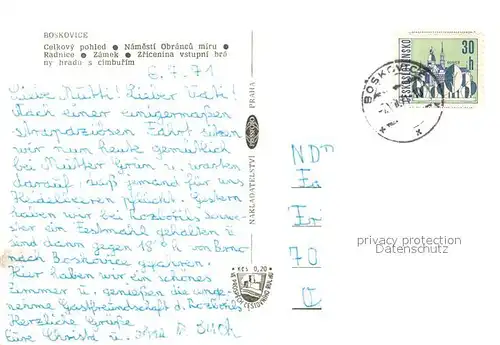 BOSKOVICE
Celkový pohled ● Náměstí Obránců míru ●
Radnice ● Zámek ● Zřícenina vstupní brá
ny hradu s cimbuřím
6. 7. 71
Liebe Mutti! Lieber Vati!
Nach einer einigermaßen
strapaziösen Fahrt sitzen
wir nun heute gemütlich
bei Mutter Grün u. warten
darauf, daß jemand für uns
Heidelbeeren pflückt. Gestern
haben wir bei Schwe-
ster ein Festmahl gehalten u.
sind dann gegen 18 h von Brno
nach Boskovice gefahren.
Hier haben wir ein schönes
Zimmer u. genießen die ange-
nehme Gastfreundschaft d.
Herzliche Grüße
Eure Christa u.
NAKLADATELSTVÍ
PRAHA
Kčs 0,20
BOSKOVICE
30 h
ČESKOSLOVENSKO
70
privacy protection
Datenschutz